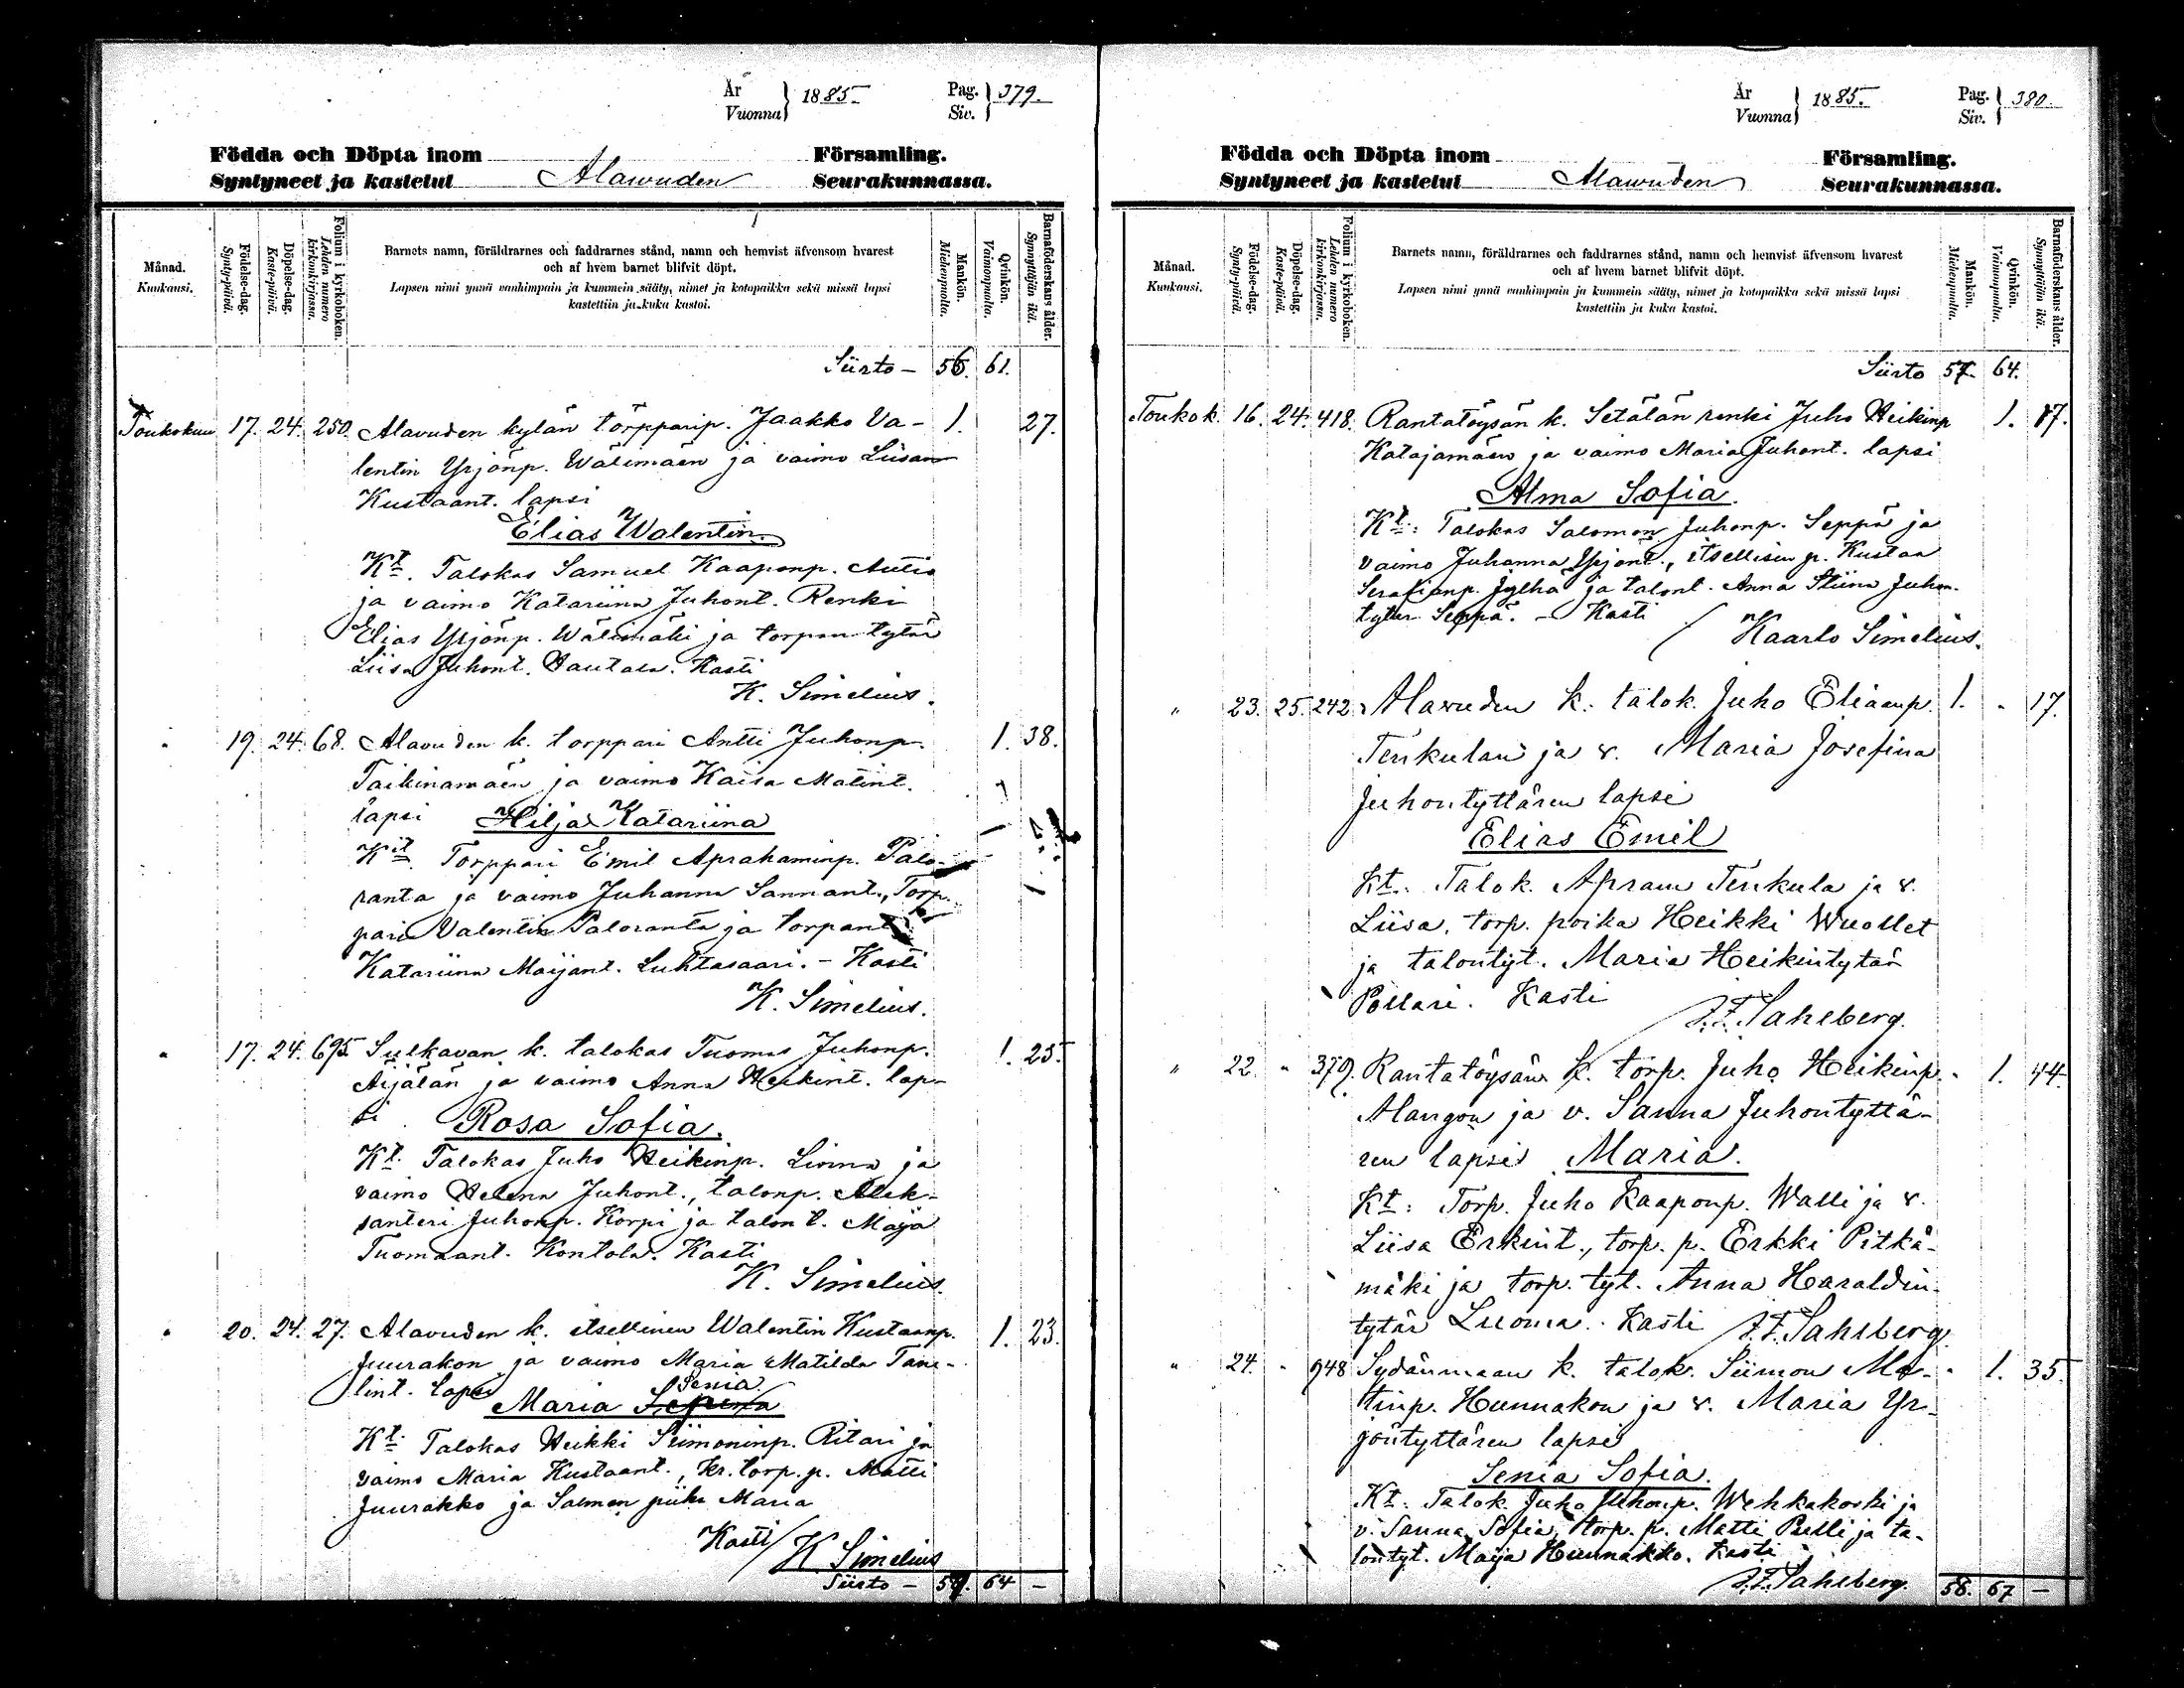 År
Vuonna } 1885. Pag.
Siv. } 379.
Födda och Döpta inom Församling.
Syntyneet ja kastetut Alawuden Seurakunnassa.
Månad.
Kuukausi.
Födelse-dag.
Synty-päivä.
Döpelse-dag.
Kaste-päivä.
Folium i kyrkoboken.
Lehden numero
kirkonkirjassa.
Barnets namn, föräldrarnes och faddrarnes stånd, namn och hemvist äfvensom hvarest
och af hvem barnet blifvit döpt.
Lapsen nimi ynnä vanhimpain ja kummein sääty, nimet ja kotopaikka sekä missä lapsi
kastettiin ja kuka kastoi.
Mankön.
Miehenpuolia.
Qvinkön.
Vaimonpuolia.
Barnaföderskans ålder.
Synnyttäjän ikä.
Siirto – 56. 61.
Toukokuu 17. 24. 250. Alavuden kylän törpparip. Jaakko Va- 1. 27.
lentin Yrjönp. Wälimäen ja vaimo Liisan
Kustaant. lapsi
Elias Walentin.
Kt. Talokas Samuel Kaaponp. Autio
ja vaimo Katariina Juhont. Renki
Elias Yrjönp. Wälimäki ja torpan tytär
Liisa Juhont. Hautala. Kasti
K. Simelius.
" 19. 24. 68. Alavuden k. torppari Antti Juhonp. 1. 38.
Taikinamäen ja vaimo Kaisa Matint.
lapsi Hilja Katariina
Kit. Torppari Emil Aprahaminp. Palo-
ranta ja vaimo Juhanna Sannant., Torp-
pari Valentin Paloranta ja torpant.
Katariina Maijant. Luhtasaari. – Kasti
K. Simelius.
" 17. 24. 695. Sulkavan k. talokas Tuomas Juhonp. 1. 25.
Äijälän ja vaimo Anna Heikint. lap-
si Rosa Sofia.
Kt. Talokas Juho Heikinp. Lioma ja
vaimo Helena Juhont., talonp. Alek-
santeri Juhonp. Korpi ja talon t. Maija
Tuomaant. Kontola. Kasti
K. Simelius.
" 20. 24. 27. Alavuden k. itsellinen Walentin Kustaanp. 1. 23.
Juurakon ja vaimo Maria Matilda Tane-
lint. lapsi Senia
Maria
Kt. Talokas Heikki Siimoninp. Ritari ja
vaimo Maria Kustaant., kr. torp. p. Matti
Juurakko ja Salmen piika Maria
Kasti / K Simelius
Siirto – 57. 64 –
År
Vuonna } 1885. Pag.
Siv. } 380.
Födda och Döpta inom Församling.
Syntyneet ja kastetut Alawuden Seurakunnassa.
Månad.
Kuukausi.
Födelse-dag.
Synty-päivä.
Döpelse-dag.
Kaste-päivä.
Folium i kyrkoboken.
Lehden numero
kirkonkirjassa.
Barnets namn, föräldrarnes och faddrarnes stånd, namn och hemvist äfvensom hvarest
och af hvem barnet blifvit döpt.
Lapsen nimi ynnä vanhimpain ja kummein sääty, nimet ja kotopaikka sekä missä lapsi
kastettiin ja kuka kastoi.
Mankön.
Miehenpuolia.
Qvinkön.
Vaimonpuolia.
Barnaföderskans ålder.
Synnyttäjän ikä.
Siirto 57. 64.
Toukok. 16. 24. 418. Rantatöysän k. Setälän renki Juho Heikinp 1.
Katajamäen ja vaimo Maria Juhont. lapsi
Alma Sofia.
Kt: Talokas Salomon Juhonp. Seppä ja
vaimo Juhanna Yrjönt., itsellisen p. Kustaa
Serafianp. Jylhä ja talont. Anna Stiina Juhon-
tytär Seppä. – Kasti
Kaarlo Simelius.
" 23. 25. 242. Alavuden k. talok. Juho Eliaanp. 1. " 17.
Tenkulan ja v. Maria Josefina
Juhontyttären lapsi
Elias Emil
Kt.: Talok. Apram Tenkula ja v.
Liisa, torp. poika Heikki Wuollet
ja talontyt. Maria Heikintytär
Pollari. Kasti
J.F. Sahlberg.
" 22. " 379. Rantatöysän k. torp. Juho Heikinp. " 1. 44.
Alangon ja v. Sanna Juhontyttä-
ren lapsi Maria.
Kt: Torp. Juho Kaaponp. Walli ja v.
Liisa Erkint., torp. p. Erkki Pitkä-
mäki ja torp. tyt. Anna Haraldin-
tytär Luoma. Kasti J.F. Sahlberg
" 24. " 948 Sydänmaan k. talok. Siimon Ma- " 1. 35.
tinp. Hunnakon ja v. Maria Yr-
jöntyttären lapsi
Senia Sofia.
Kt: Talok. Juho Juhonp. Wehkakoski ja
v. Sanna Sofia, torp. p. Matti Pulli ja ta-
lontyt. Maija Hunnakko. Kasti
J.F. Sahlberg. 58. 67 –